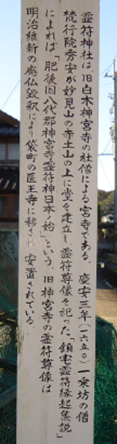 霊符神社は、旧白木神宮寺の社僧による宮寺である。慶安三年(一六五〇)一乗坊の僧
梵行院秀安が妙見山の赤土山の上に堂を建立し、霊符尊像を祀った。「鎮宅霊符縁起集説」
によれば「肥後国八代郡神宮寺霊符神日本ノ始」という。旧神宮寺の霊符尊像は
明治維新の廃仏毀釈により袋町の医王寺に移され安置されている。